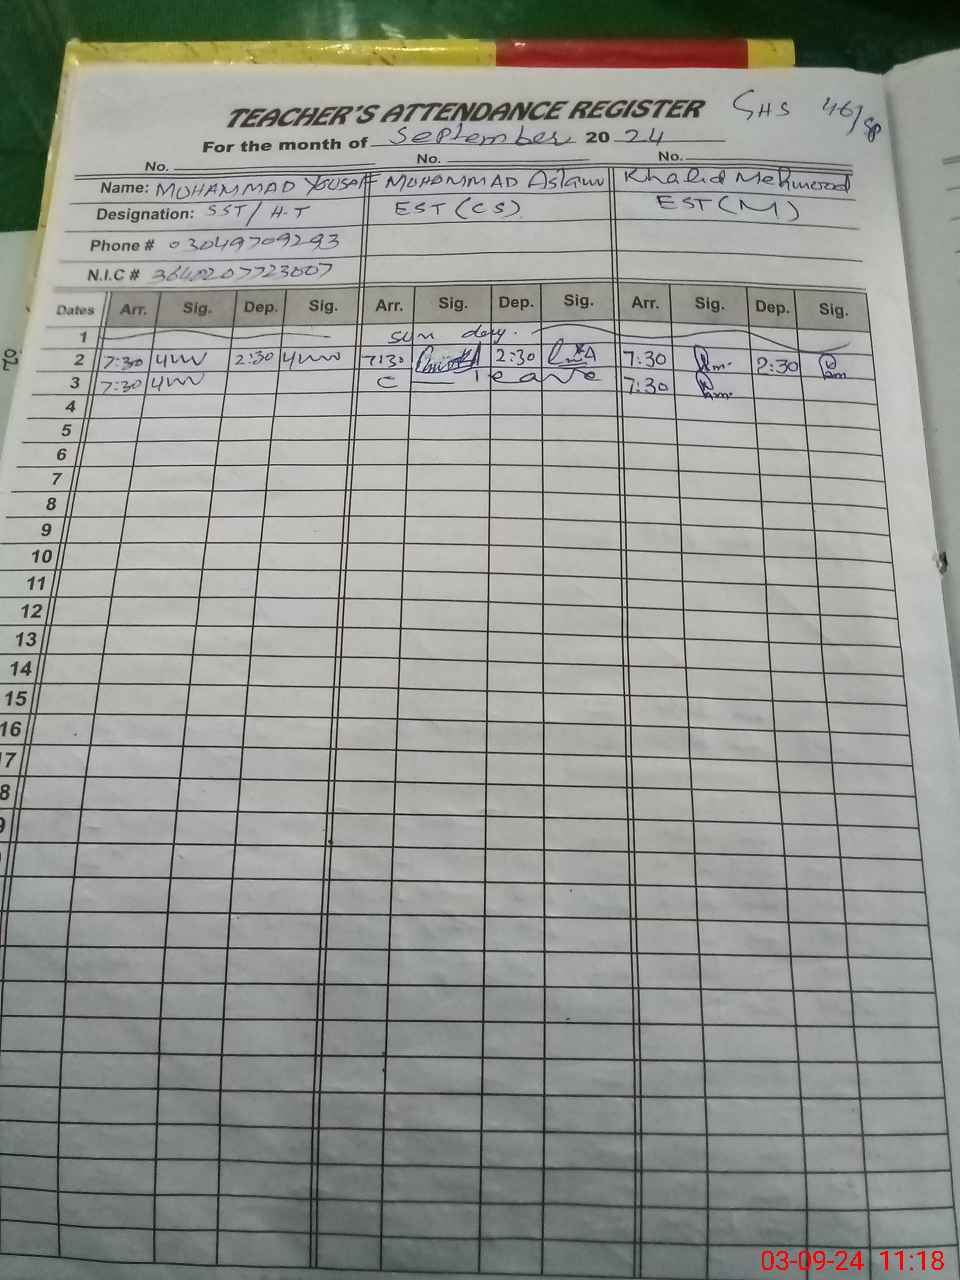 TEACHER'S ATTENDANCE REGISTER GHS 46/SP
For the month of September 20 24
No. No. No.
Name: MUHAMMAD YOUSAF MUHAMMAD Aslam Khalid Mehmood
Designation: SST/H-T EST (CS) EST (M)
Phone # 03049709293
N.I.C #
Dates Arr. Sig. Dep. Sig. Arr. Sig. Dep. Sig. Arr. Sig. Dep. Sig.
1 sun day.
2 7:30 2:30 7:30 2:30 7:30 2:30
3 7:30 C leave 7:30
4
5
6
7
8
9
10
11
12
13
14
15
16
7
8
9
02
03-09-24 11:18